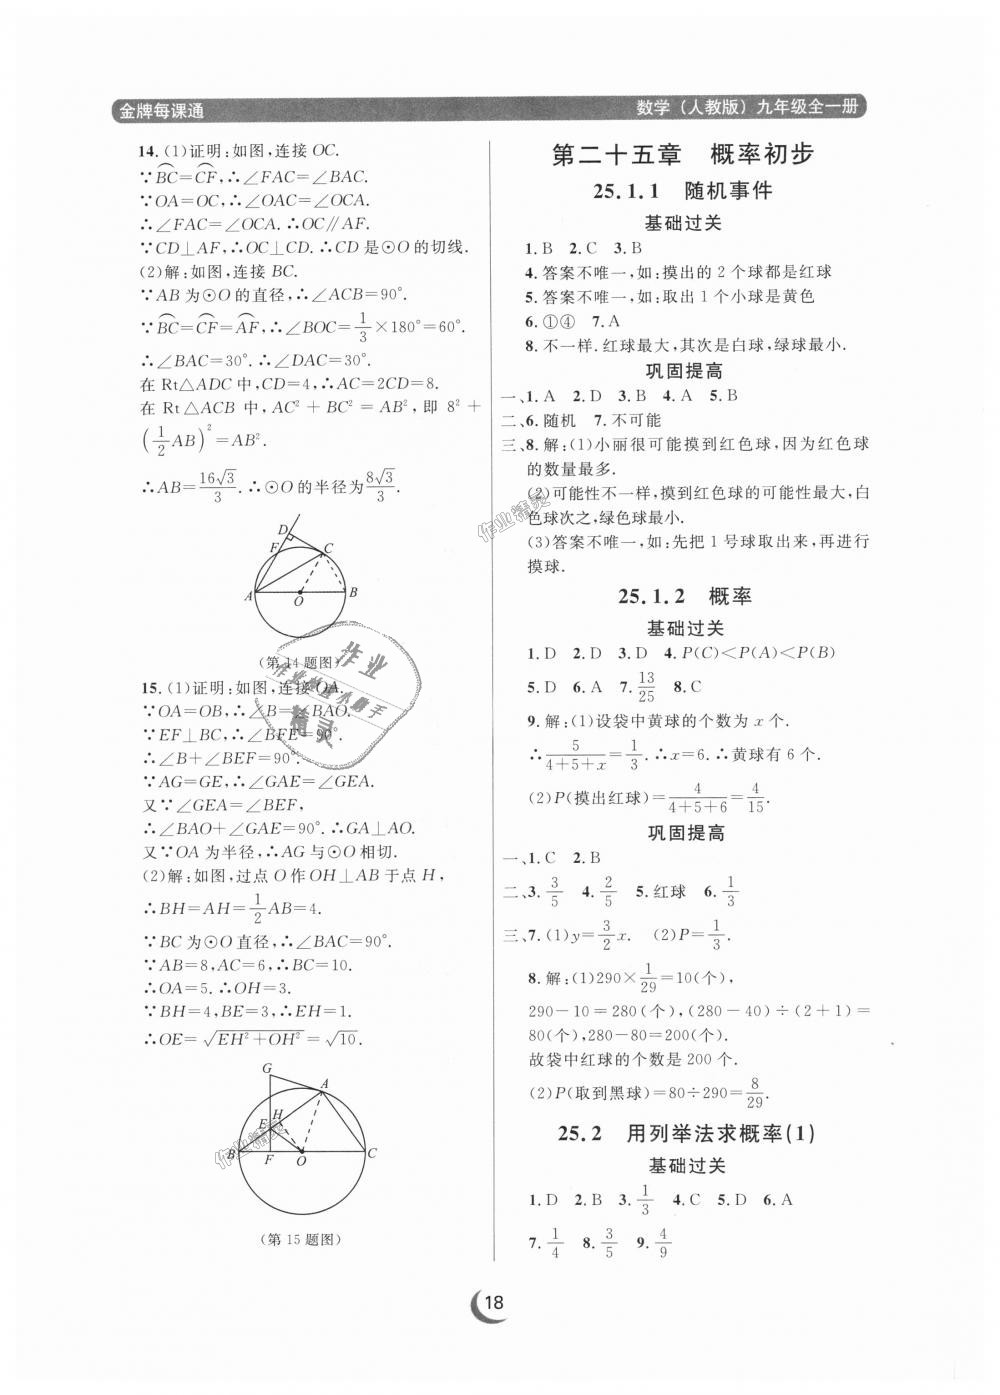 金牌每课通
数学（人教版）九年级全一册
14.(1)证明:如图,连接 OC.
∵BC=CF,∴∠FAC=∠BAC.
∵OA=OC,∴∠OAC=∠OCA.
∴∠FAC=∠OCA.∴OC∥AF.
∵CD⊥AF,∴OC⊥CD.∴CD 是⊙O 的切线.
(2)解:如图,连接 BC.
∵AB 为⊙O 的直径,∴∠ACB=90°.
∵BC=CF=AF,∴∠BOC=1/3×180°=60°.
∴∠BAC=30°.∴∠DAC=30°.
在 Rt△ADC 中,CD=4,∴AC=2CD=8.
在 Rt△ACB 中,AC²+BC²=AB²,即 8²+
(1/2AB)²=AB².
∴AB=16√3/3.∴⊙O 的半径为8√3/3.
D
F
C
A
O
B
(第 14 题图)
15.(1)证明:如图,连接 OA.
∵OA=OB,∴∠B=∠BAO.
∵EF⊥BC,∴∠BFE=90°.
∴∠B+∠BEF=90°.
∵AG=GE,∴∠GAE=∠GEA.
又∵∠GEA=∠BEF,
∴∠BAO+∠GAE=90°.∴GA⊥AO.
又∵OA 为半径,∴AG 与⊙O 相切.
(2)解:如图,过点 O 作 OH⊥AB 于点 H,
∴BH=AH=1/2AB=4.
∵BC 为⊙O 直径,∴∠BAC=90°.
∵AB=8,AC=6,∴BC=10.
∴OA=5.∴OH=3.
∵BH=4,BE=3,∴EH=1.
∴OE=√(EH²+OH²)=√10.
G
A
H
E
B
F
O
C
(第 15 题图)
第二十五章 概率初步
25.1.1 随机事件
基础过关
1.B 2.C 3.B
4.答案不唯一,如:摸出的 2 个球都是红球
5.答案不唯一,如:取出 1 个小球是黄色
6.①④ 7.A
8.不一样.红球最大,其次是白球,绿球最小.
巩固提高
一、1.A 2.D 3.B 4.A 5.B
二、6.随机 7.不可能
三、8.解:(1)小丽很可能摸到红色球,因为红色球
的数量最多.
(2)可能性不一样,摸到红色球的可能性最大,白
色球次之,绿色球最小.
(3)答案不唯一,如:先把 1 号球取出来,再进行
摸球.
25.1.2 概率
基础过关
1.D 2.D 3.D 4.P(C)<P(A)<P(B)
5.D 6.A 7.13/25 8.C
9.解:(1)设袋中黄球的个数为 x 个.
∴5/(4+5+x)=1/3.∴x=6.∴黄球有 6 个.
(2)P(摸出红球)=4/(4+5+6)=4/15.
巩固提高
一、1.C 2.B
二、3.3/5 4.2/5 5.红球 6.1/3
三、7.(1)y=3/2x. (2)P=1/3.
8.解:(1)290×1/29=10(个),
290-10=280(个),(280-40)÷(2+1)=
80(个),280-80=200(个).
故袋中红球的个数是 200 个.
(2)P(取到黑球)=80÷290=8/29.
25.2 用列举法求概率(1)
基础过关
1.D 2.B 3.1/3 4.C 5.D 6.A
7.1/4 8.3/5 9.4/9
18
作业精灵
作业
作业检查小助手
精灵
作业精灵